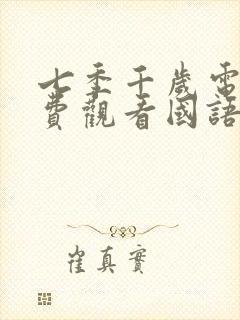 七季千歲電
費觀看國語
崔真實